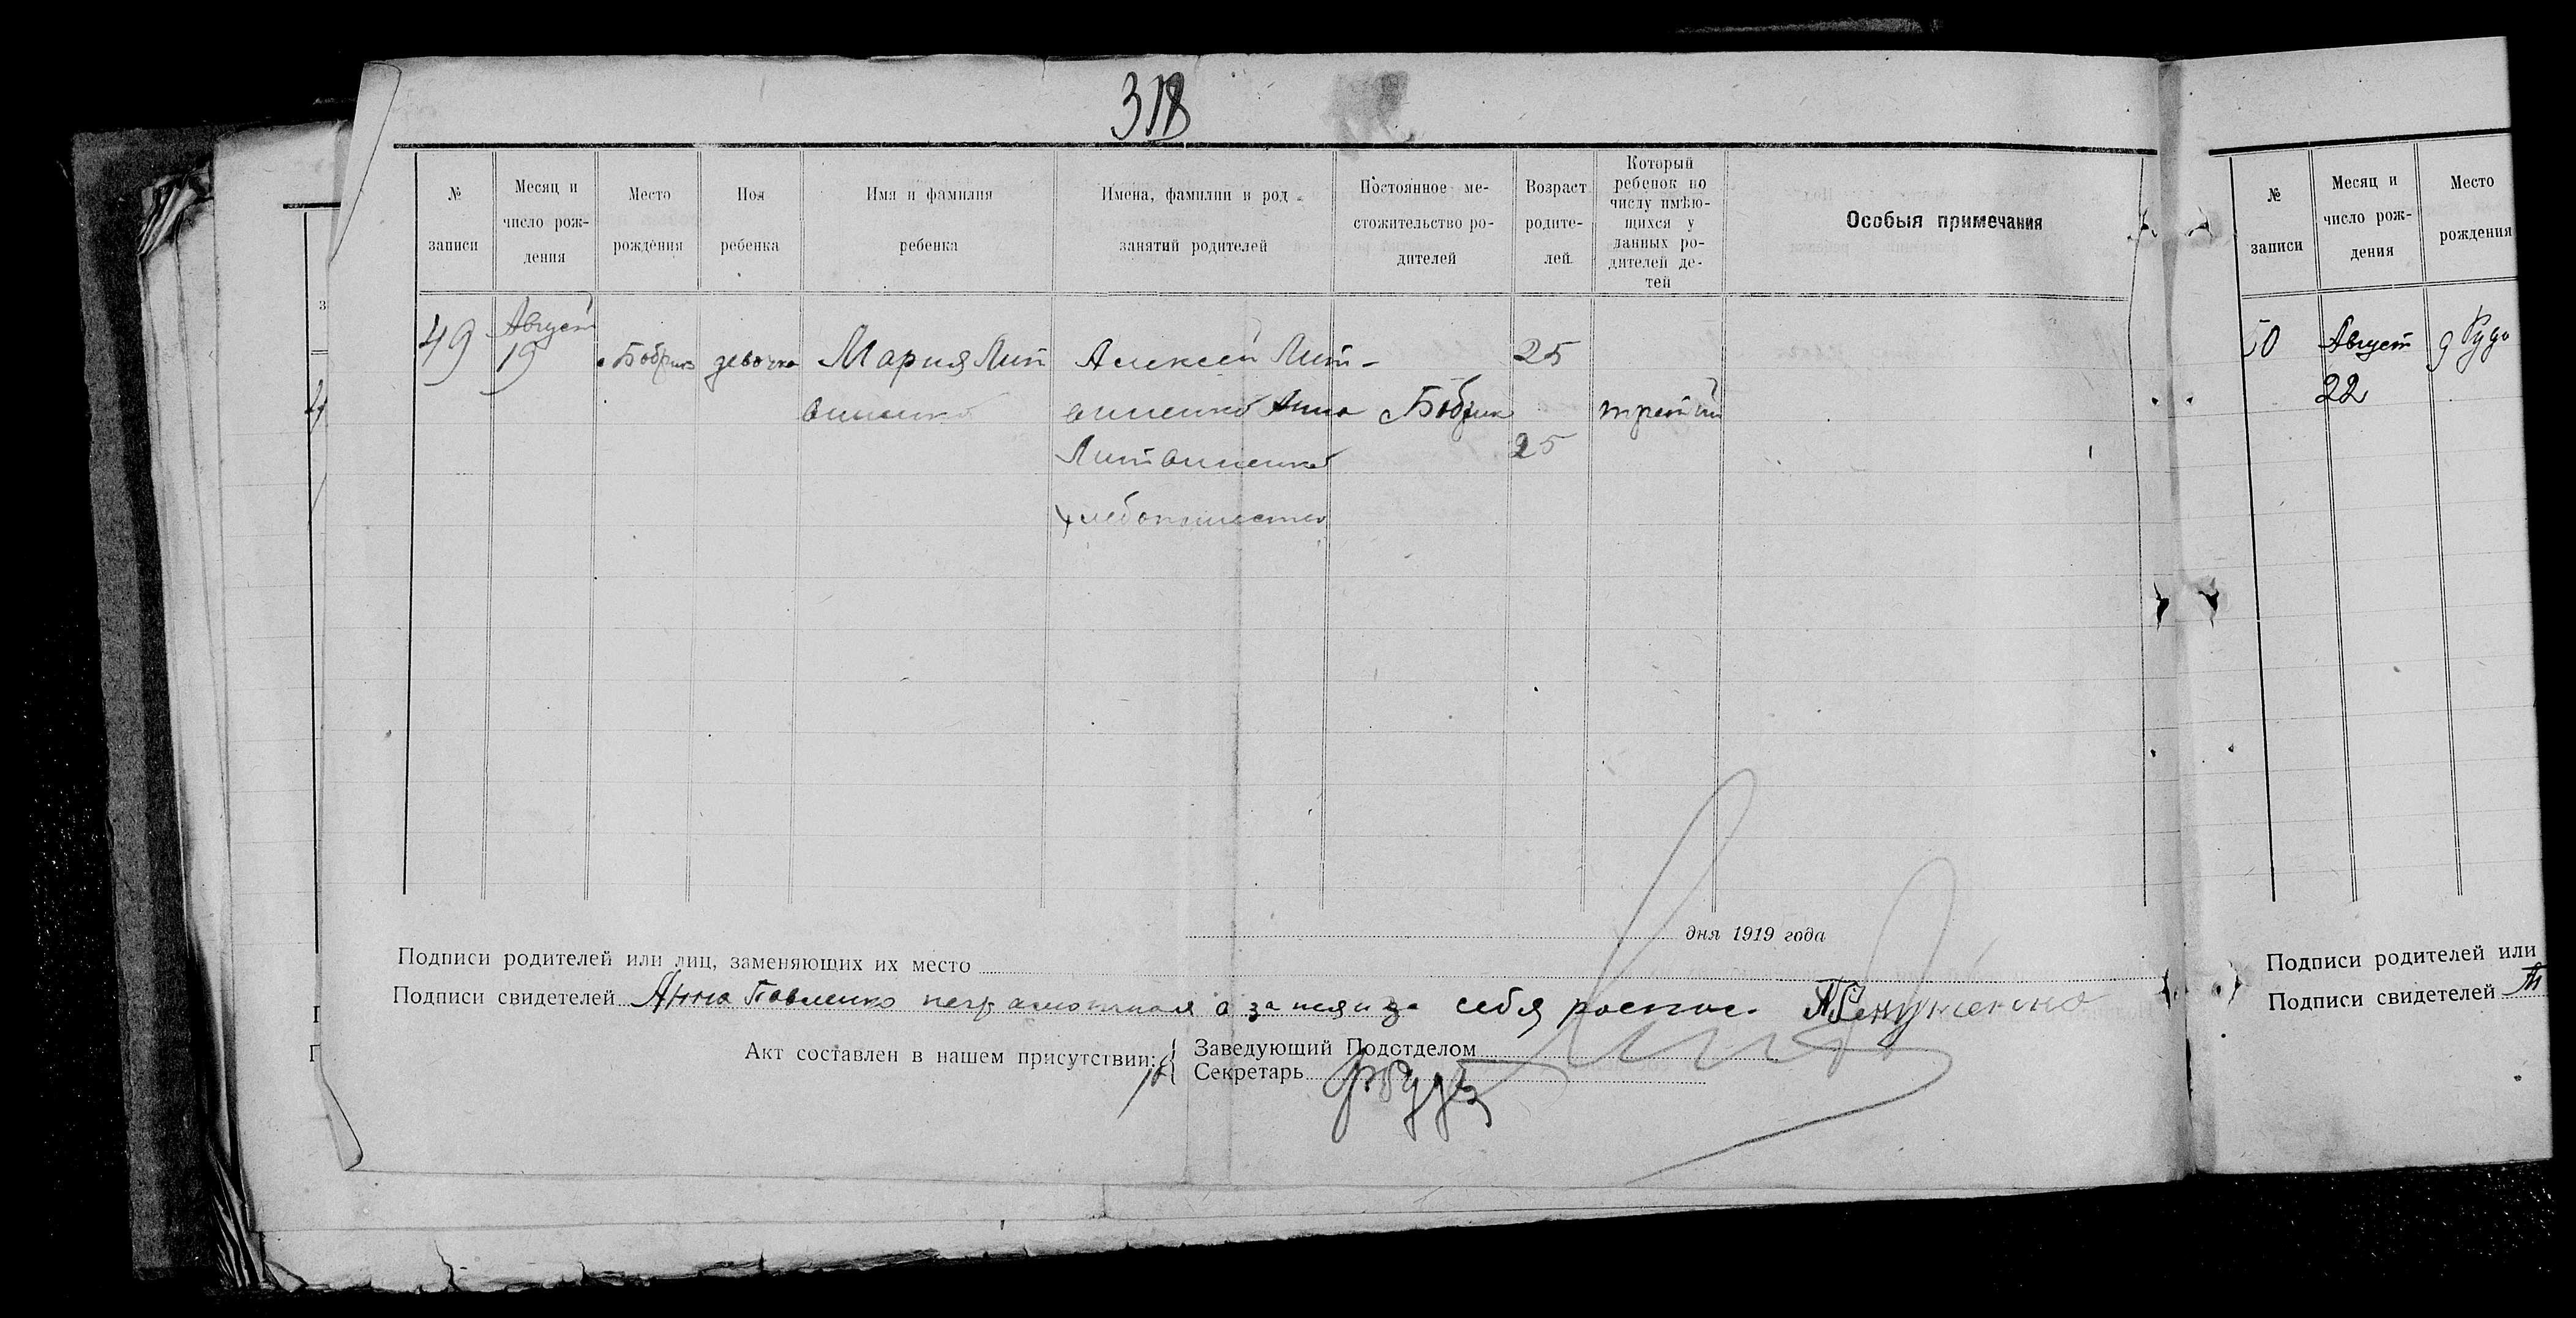 318
№ записи
Месяц и число рождения
Место рождения
Пол ребенка
Имя и фамилия ребенка
Имена, фамилии и род занятий родителей
Постоянное местожительство родителей
Возраст родителей
Который ребенок по числу имѣющихся у данных родителей детей
Особыя примечания
49
Август
19
Бобрик
девочка
Мария Лит
виненко
Алексей Лит-
виненко Анна
Литвиненко
хлебопашество
Бобрик
25
25
третий
дня 1919 года
Подписи родителей или лиц, заменяющих их место
Подписи свидетелей Анна Павленко неграмотная а за нея и за себя роспис.
Акт составлен в нашем присутствии:
Заведующий Подотделом
Секретарь
№ записи
Месяц и число рождения
Место рождения
50
Август
22
Подписи родителей или
Подписи свидетелей